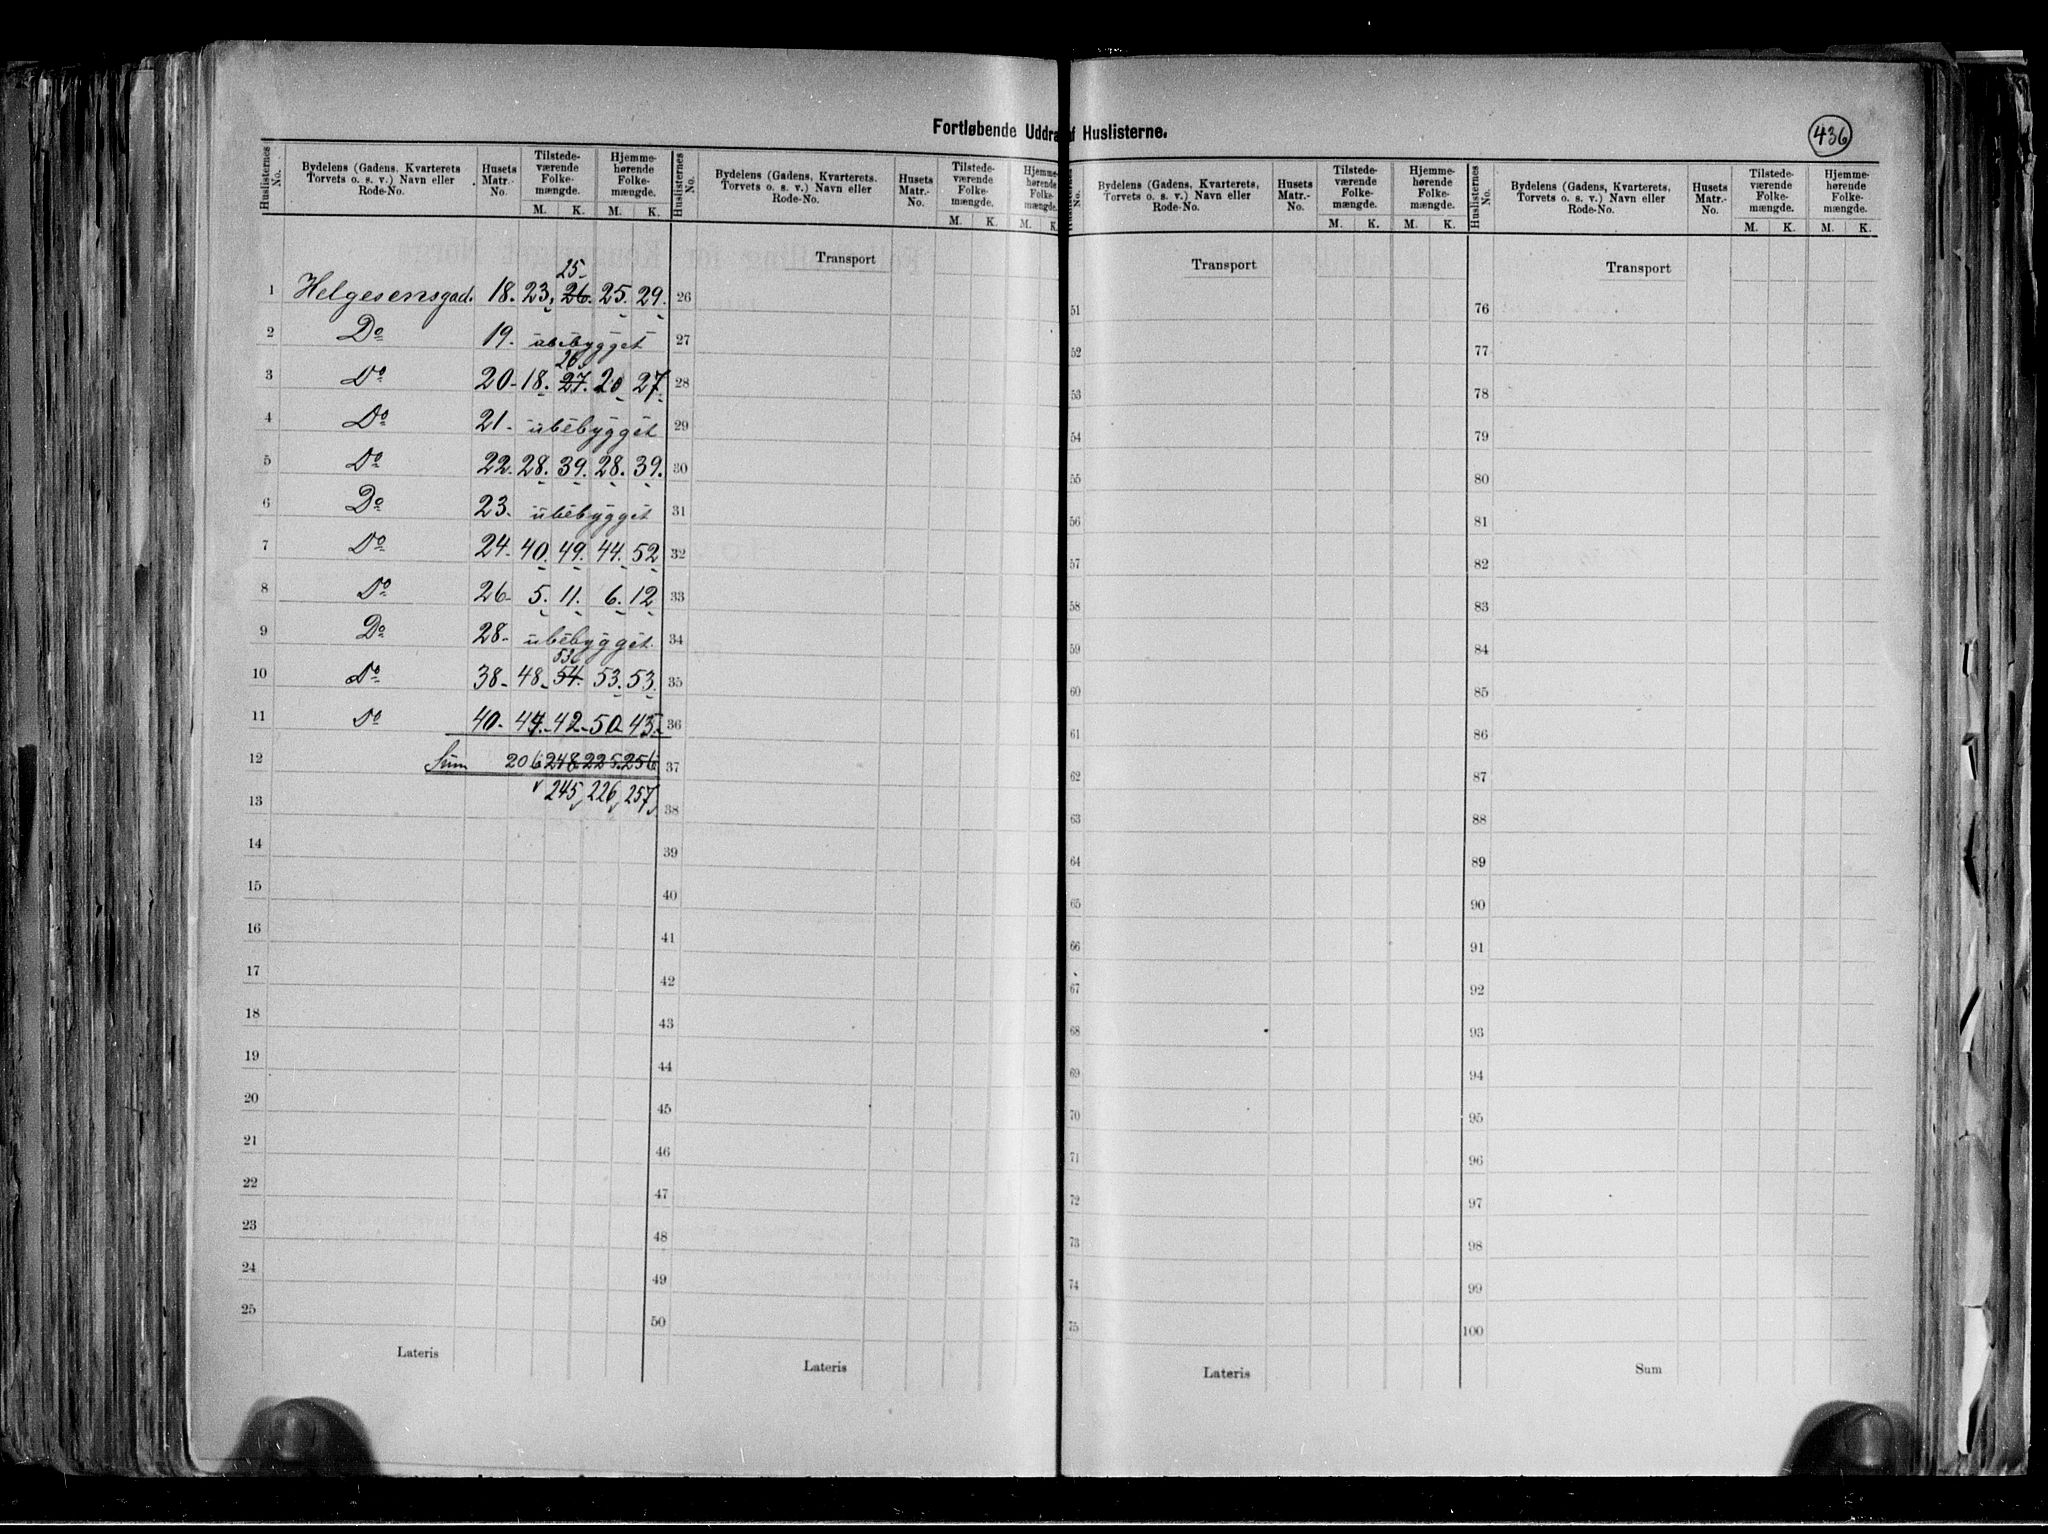 Fortløbende Uddra af Huslisterne.
436
Huslisternes No. Bydelens (Gadens, Kvarterets Torvets o. s. v.) Navn eller Rode-No. Husets Matr.-No. Tilstede-værende Folke-mængde. M. K. Hjemme-hørende Folke-mængde. M. K.
25
1 Helgesensgad. 18. 23. 26. 25. 29.
2 Do 19. ubebygget
26
3 Do 20. 18. 27. 20 27
4 Do 21. ubebygget
5 Do 22. 28. 39. 28. 39.
6 Do 23. ubebygget
7 Do 24. 40. 49. 44. 52
8 Do 26 5. 11. 6. 12
9 Do 28. ubebygget.
53
10 Do 38. 48. 54. 53. 53.
11 Do 40. 44. 42. 50. 45.
12 Sum 206 248. 225. 256
13 245 226 257
14
15
16
17
18
19
20
21
22
23
24
25
Lateris
Huslisternes No. Bydelens (Gadens, Kvarterets. Torvets o. s. v.) Navn eller Rode-No. Husets Matr.-No. Tilstede-værende Folke-mængde. M. K. Hjemme-hørende Folke-mængde. M. K.
Transport
26
27
28
29
30
31
32
33
34
35
36
37
38
39
40
41
42
43
44
45
46
47
48
49
50
Lateris
No. Bydelens (Gadens, Kvarterets, Torvets o. s. v.) Navn eller Rode-No. Husets Matr.-No. Tilstede-værende Folke-mængde. M. K. Hjemme-hørende Folke-mængde. M. K.
Transport
51
52
53
54
55
56
57
58
59
60
61
62
63
64
65
66
67
68
69
70
71
72
73
74
75
Lateris
Huslisternes No. Bydelens (Gadens, Kvarterets, Torvets o. s. v.) Navn eller Rode-No. Husets Matr.-No. Tilstede-værende Folke-mængde. M. K. Hjemme-hørende Folke-mængde. M. K.
Transport
76
77
78
79
80
81
82
83
84
85
86
87
88
89
90
91
92
93
94
95
96
97
98
99
100
Sum